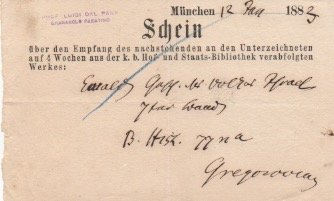 PROF. LUIGI DAL PANE
München 12 Jan 1883
Schein
über den Empfang des nachstehenden an den Unterzeichneten
auf 4 Wochen aus der k. b. Hof- und Staats-Bibliothek verabfolgten
Werkes:
Ewald Gesch. des Volkes Israel
7ter Band
B. Hist.
Gregorovius